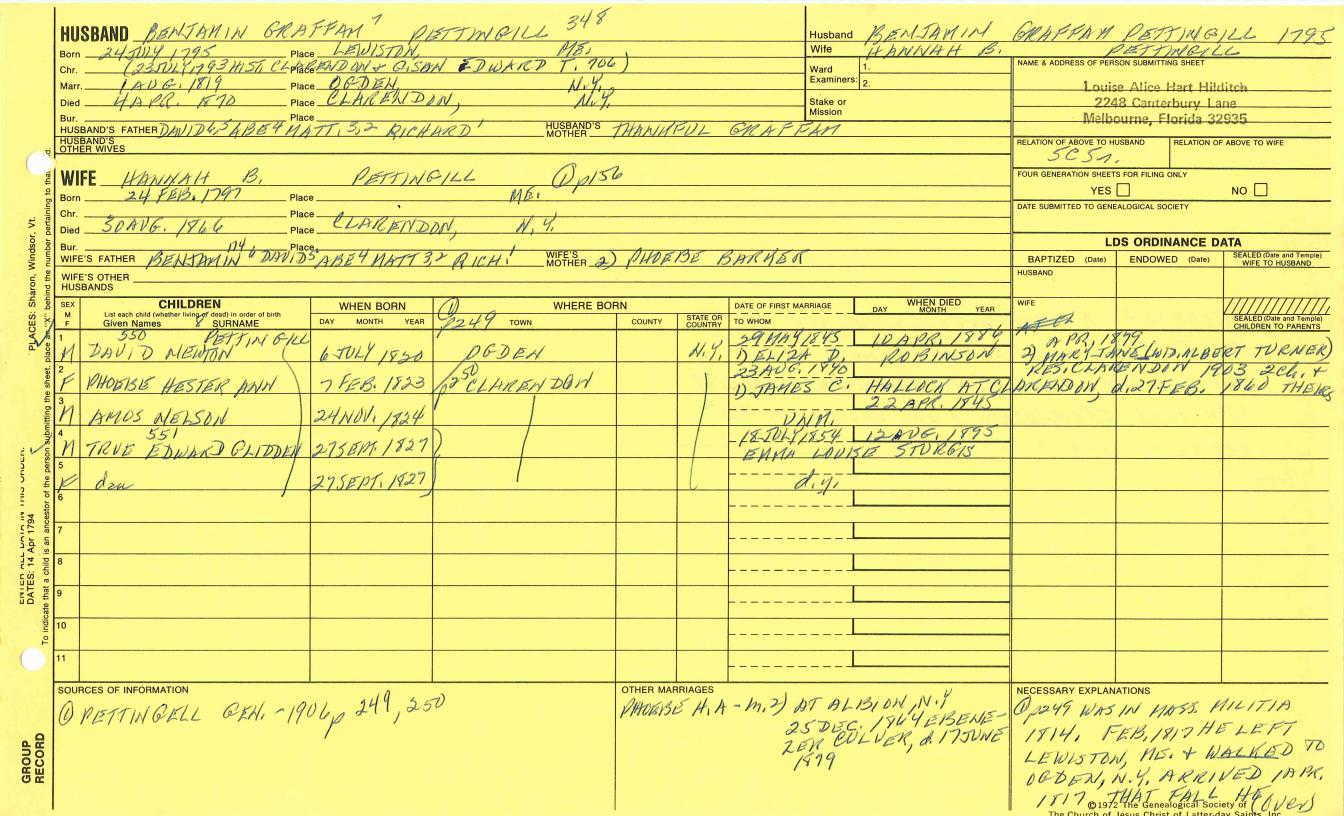 HUSBAND BENJAMIN GRAFFAM 7 PETTINGILL 348
Born 24 JULY 1795 Place LEWISTON, ME.
Chr. (23 JULY 1793 HIST. CLARENDON & G. SAN EDWARD T. 706)
Marr. 1 AUG. 1819 Place OGDEN, N.Y.
Died 4 APR. 1870 Place CLARENDON, N.Y.
Bur. Place
HUSBAND'S FATHER DAVID 6,5 ABE 4 MATT. 3,2 RICHARD 1 HUSBAND'S MOTHER THANKFUL GRAFFAM
HUSBAND'S OTHER WIVES
Husband BENJAMIN GRAFFAM PETTINGILL 1795
Wife HANNAH B. PETTINGILL
Ward Examiners: 1.
2.
Stake or Mission
NAME & ADDRESS OF PERSON SUBMITTING SHEET
Louise Alice Hart Hilditch
2248 Canterbury Lane
Melbourne, Florida 32935
RELATION OF ABOVE TO HUSBAND RELATION OF ABOVE TO WIFE
5C5r.
FOUR GENERATION SHEETS FOR FILING ONLY
YES NO
DATE SUBMITTED TO GENEALOGICAL SOCIETY
WIFE HANNAH B. PETTINGILL ① p156
Born 24 FEB. 1797 Place ME.
Chr. Place
Died 30 AUG. 1866 Place CLARENDON, N.Y.
Bur. Place
WIFE'S FATHER BENJAMIN 174 6 DAVID 5 ABE 4 MATT 3,2 RICH. 1 WIFE'S MOTHER 2) PHOEBE BARKER
WIFE'S OTHER HUSBANDS
LDS ORDINANCE DATA
BAPTIZED (Date) ENDOWED (Date) SEALED (Date and Temple) WIFE TO HUSBAND
HUSBAND
WIFE
SEALED (Date and Temple) CHILDREN TO PARENTS
SEX M F
CHILDREN
List each child (whether living or dead) in order of birth
Given Names 8 SURNAME
WHEN BORN
DAY MONTH YEAR
WHERE BORN
① p249 TOWN COUNTY STATE OR COUNTRY
DATE OF FIRST MARRIAGE
TO WHOM
WHEN DIED
DAY MONTH YEAR
1 550 PETTINGILL 29 MAY 1845 10 APR. 1886 APR, 1899
M DAVID NEWTON 6 JULY 1820 OGDEN N.Y. 1) ELIZA D. ROBINSON 2) MARY JANE (WID. ALBERT TURNER)
2 p250 23 AUG. 1840 RES. CLARENDON 1903 2Ch. +
F PHOEBE HESTER ANN 7 FEB. 1823 CLARENDON 1) JAMES C. HALLOCK AT CLARENDON, d. 27 FEB. 1860 THERE
3 22 APR. 1845
M AMOS NELSON 24 NOV. 1824 UNM.
4 551 18 JULY 1854 12 AUG. 1895
M TRUE EDWARD GLIDDEN 27 SEPT. 1827 EMMA LOUISE STURGIS
5
F dau 27 SEPT. 1827 d.y.
6
7
8
9
10
11
SOURCES OF INFORMATION
① PETTINGELL GEN. - 1906 p 249, 250
OTHER MARRIAGES
PHOEBE H. A - m. 2) AT ALBION, N.Y
25 DEC. 1864 EBENE-
ZER CULVER, d. 17 JUNE
1879
NECESSARY EXPLANATIONS
① p249 WAS IN MASS. MILITIA
1814. FEB. 1817 HE LEFT
LEWISTON, ME. & WALKED TO
OGDEN, N.Y. ARRIVED 1 APR.
1817. THAT FALL HE (over)
©1972 The Genealogical Society of
The Church of Jesus Christ of Latter-day Saints, Inc.
ENTER ALL DATA IN THIS ORDER:
DATES: 14 Apr 1794
PLACES: Sharon, Windsor, Vt.
To indicate that a child is an ancestor of the person submitting the sheet, place an "X" behind the number pertaining to that
GROUP RECORD